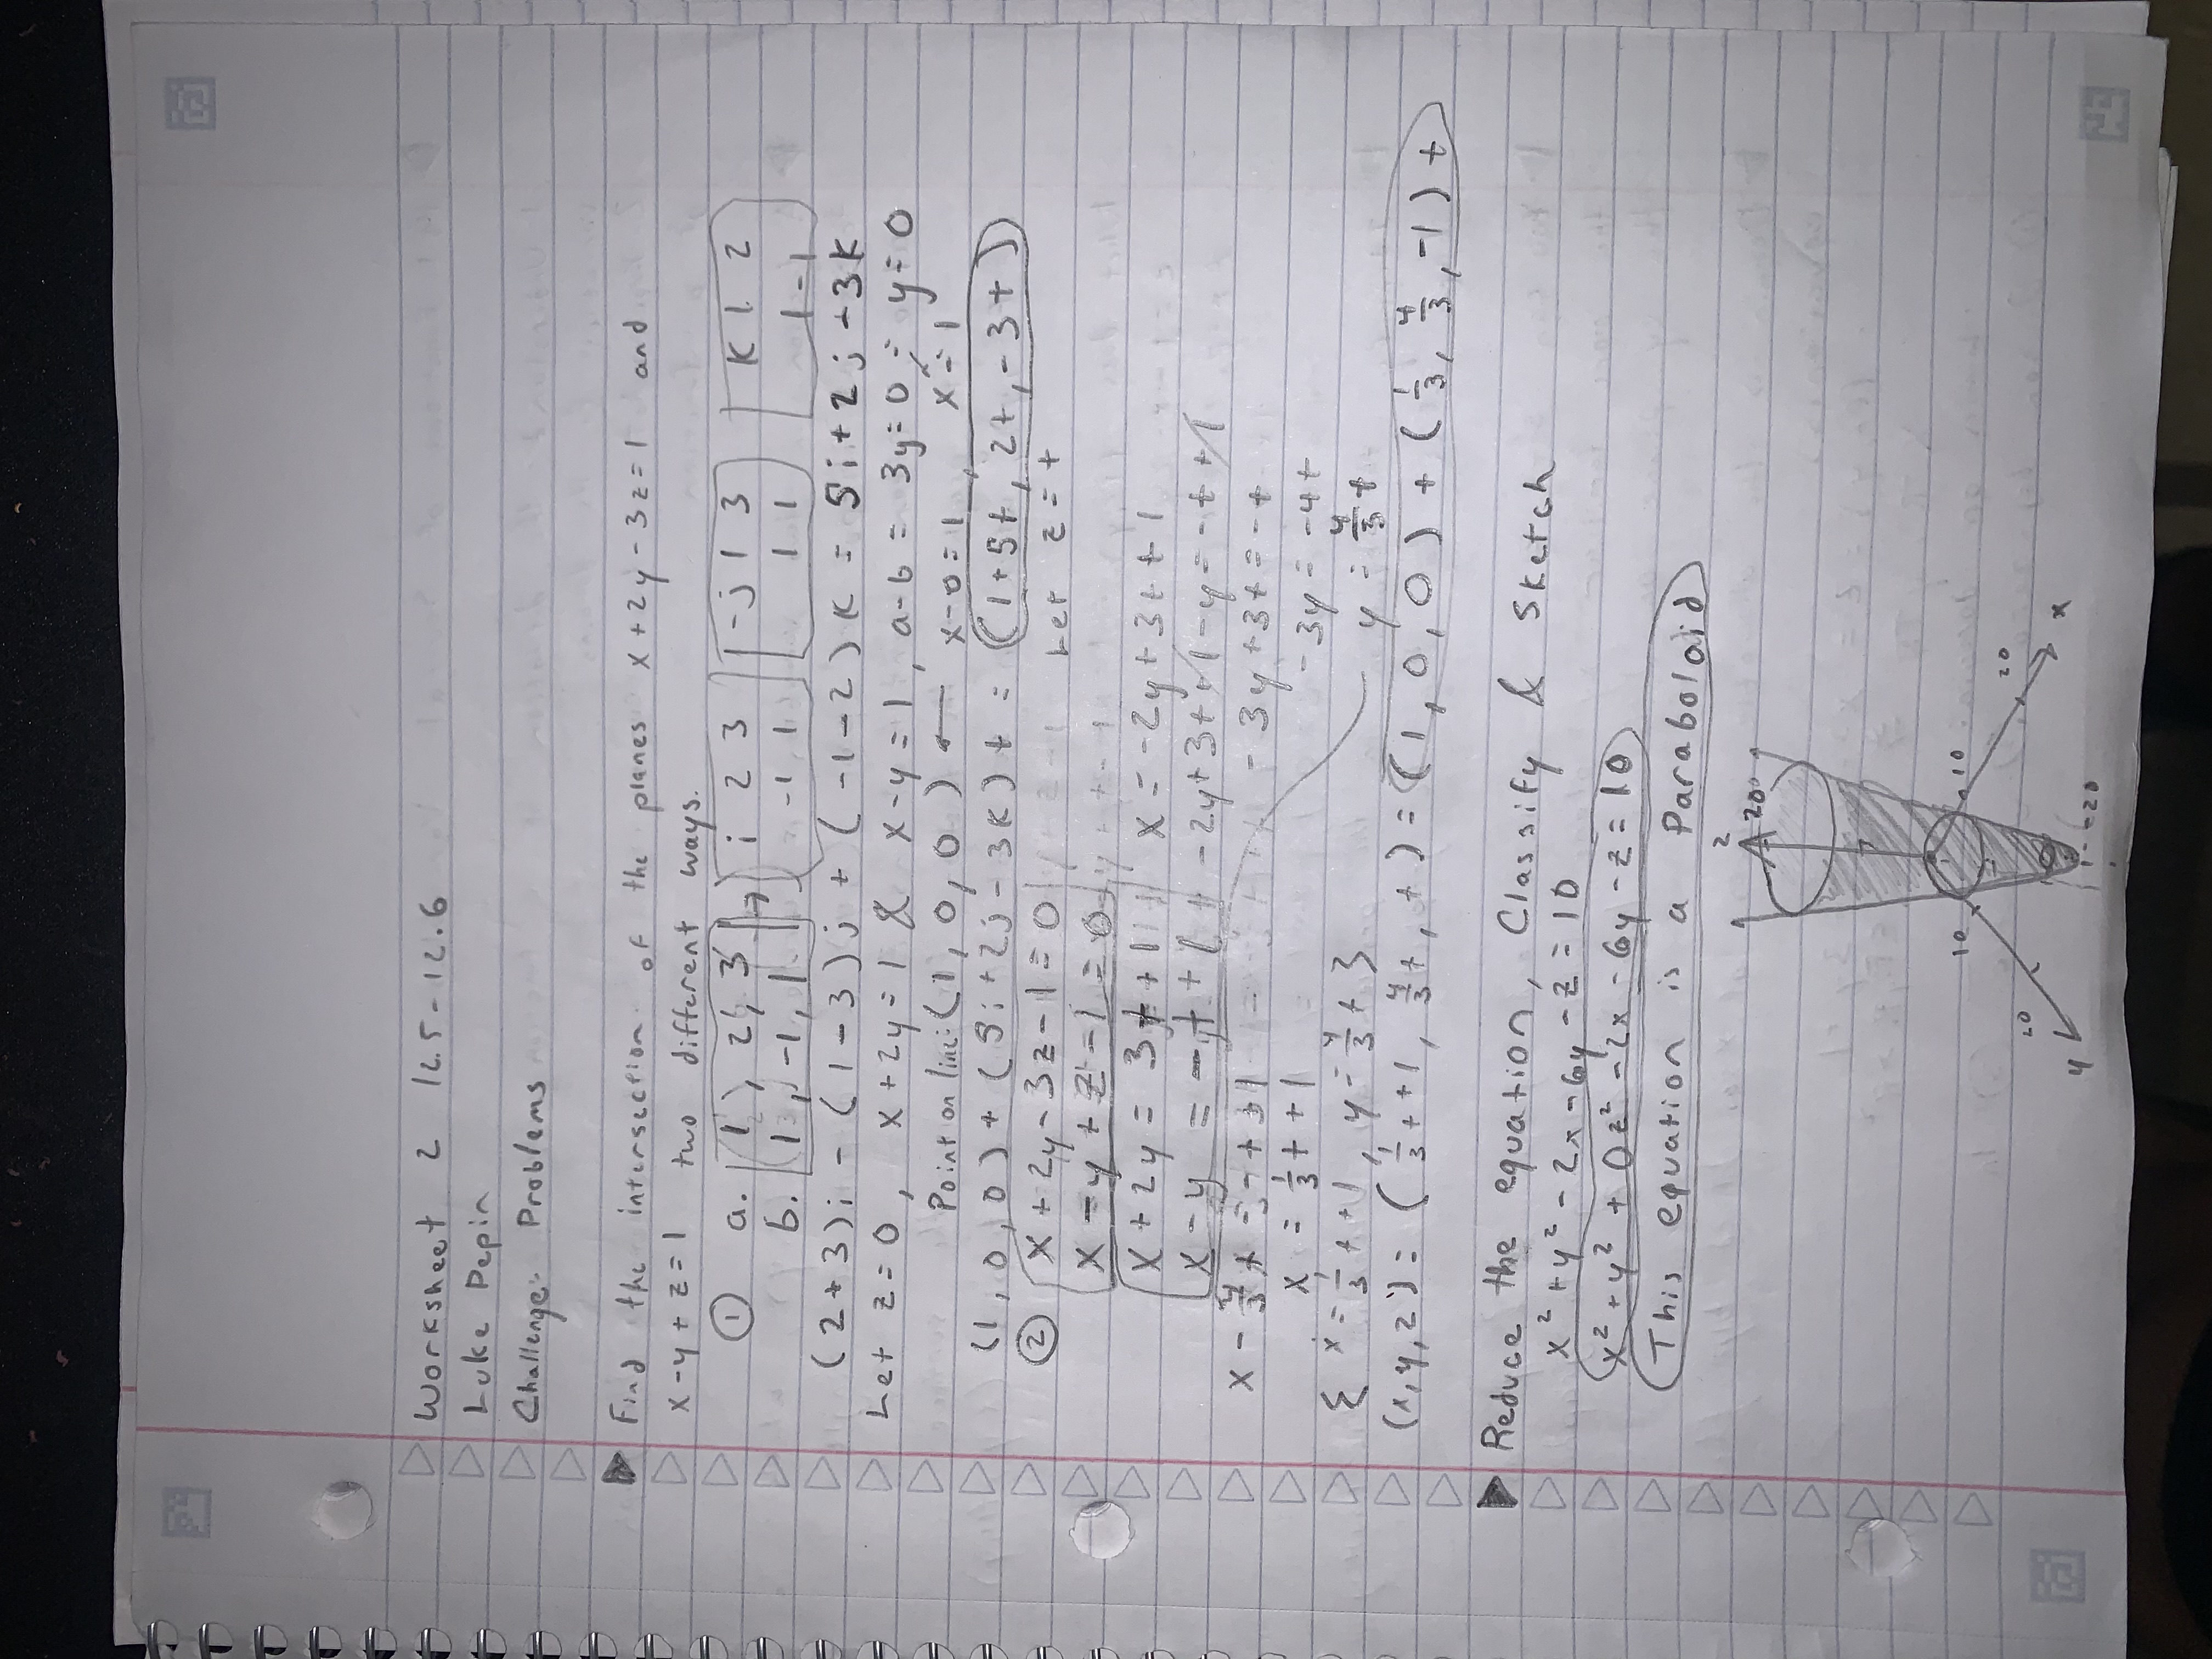 Worksheet 2 12.5-12.6
Luke Pepin
Challenge Problems
Find the intersection of the planes x+2y-3z=1 and
x-y+z=1 two different ways.
① a. 1, 2, 3 → i 2 3 -j 1 3 k 1 2
b. 1, -1, 1 -1 1 1 1 1 -1
(2+3)i - (1-3)j + (-1-2)k = 5i+2j-3k
Let z=0, x+2y=1 & x-y=1, a-b = 3y=0 = y=0
Point on line: (1, 0, 0) ← x-0=1, x=1
(1, 0, 0) + (5i+2j-3k)t = (1+5t, 2t, -3t)
② x+2y-3z-1=0 Let z=t
x-y+z-1=0
x+2y = 3t+1 x=-2y+3t+1
x-y = -t+1 -2y+3t+1-y=-t+1
x-4/3t=-t+1 -3y+3t=-t
x = 1/3t+1 -3y=-4t
{ x=1/3t+1, y=4/3t } y=4/3t
(x,y,z)= (1/3t+1, 4/3t, t) = (1, 0, 0) + (1/3, 4/3, -1)t
Reduce the equation, Classify & Sketch
x²+y²-2x-6y-z=10
x²+y²+0z²-2x-6y-z=10
This equation is a Parabolaid
z
20
10 10
20 20
y x
-20